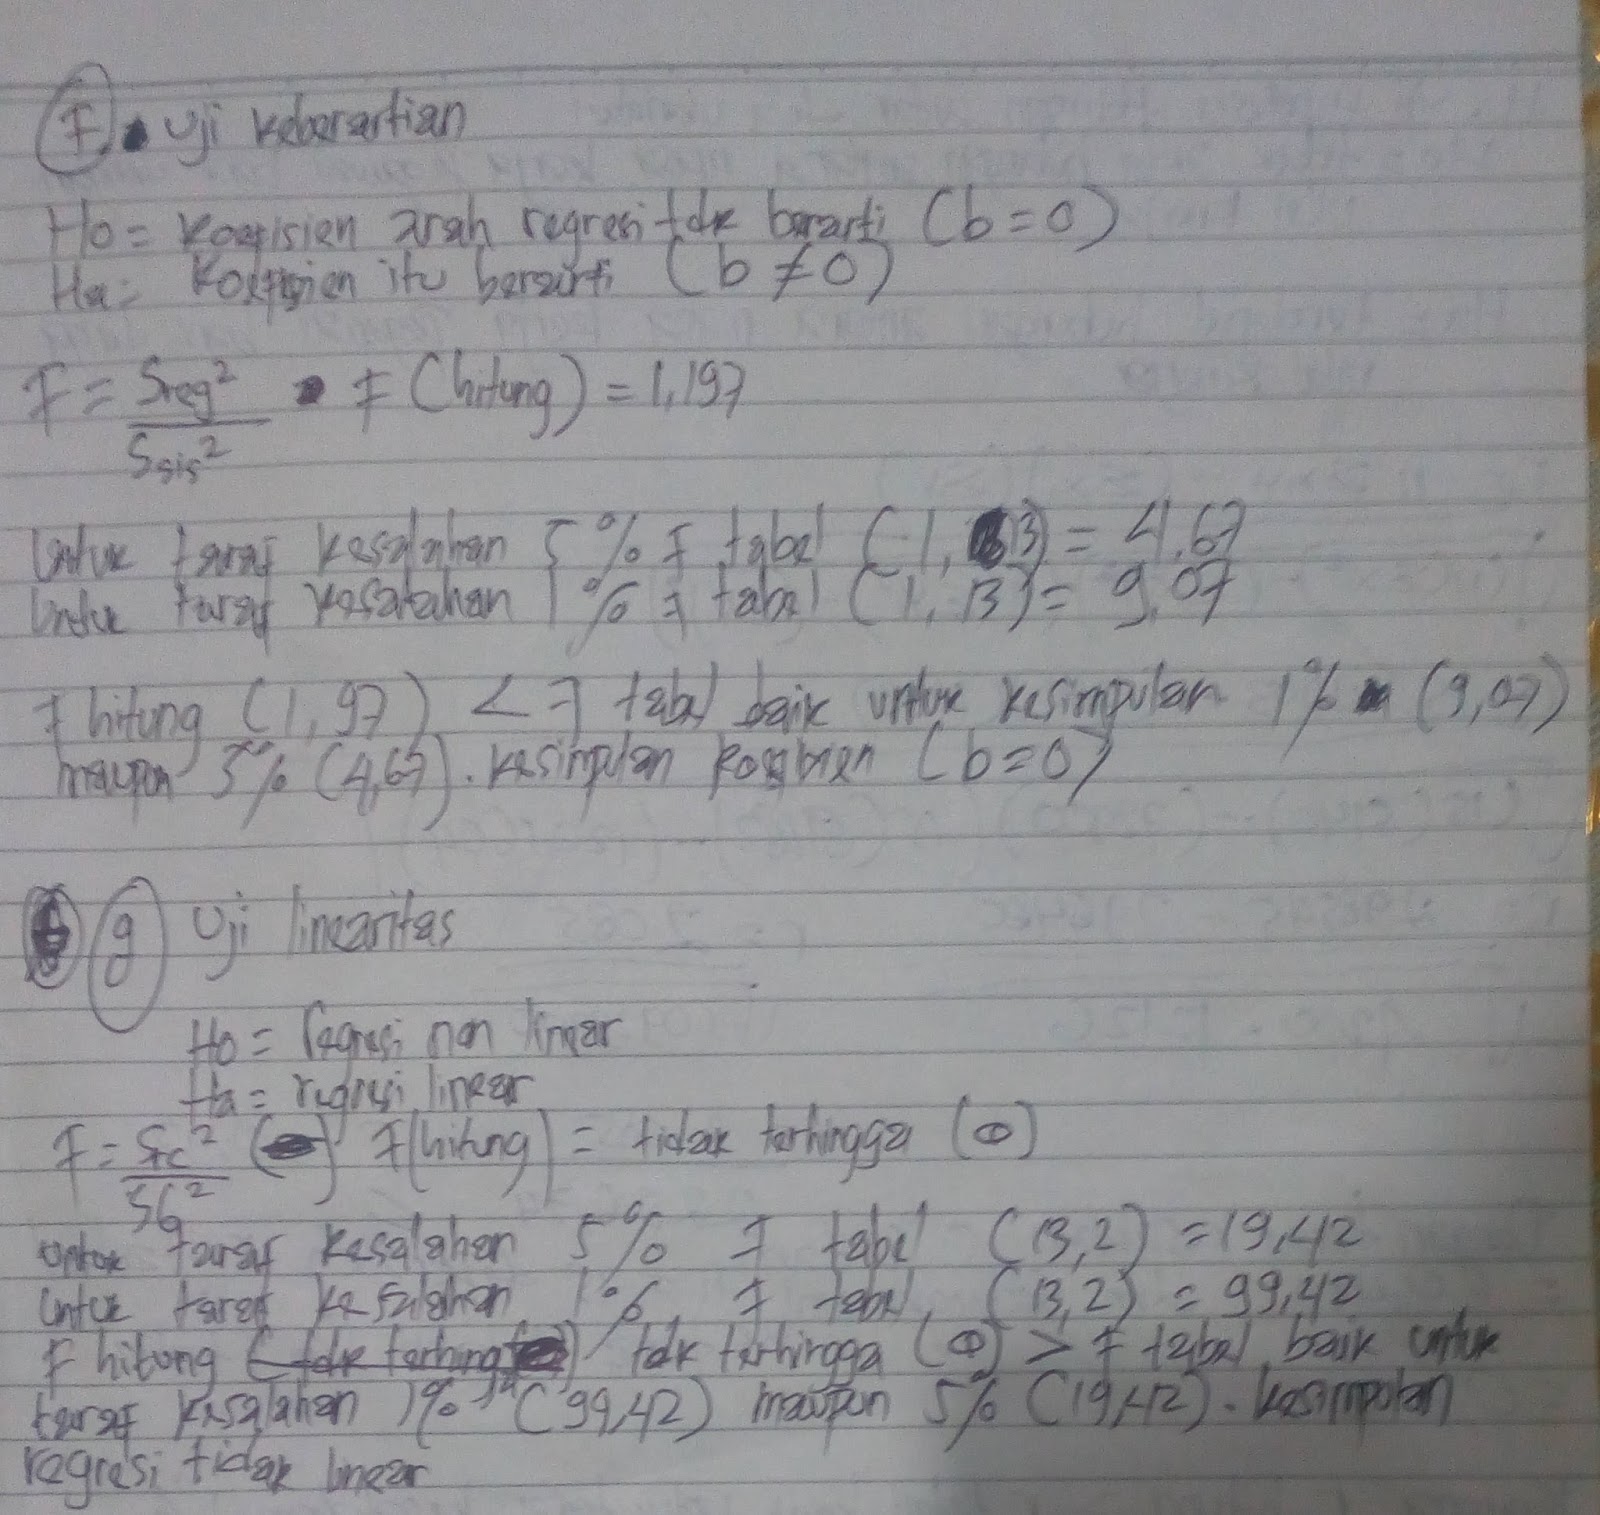 F. Uji keberartian
Ho = Koefisien arah regresi tdk berarti (b = 0)
Ha = Koefisien itu berarti (b ≠ 0)
F = Sreg² / Ssis² F (hitung) = 1,197
Untuk taraf kesalahan 5% F tabel (1, 13) = 4,67
Untuk taraf kesalahan 1% F tabel (1, 13) = 9,07
F hitung (1,97) < F tabel baik untuk kesimpulan 1% (9,07)
maupun 5% (4,67). kesimpulan koefisien (b = 0)
g Uji linearitas
Ho = regresi non linear
Ha = regresi linear
F = STC² / SG² F (hitung) = tidak terhingga (Φ)
untuk taraf kesalahan 5% F tabel (13,2) = 19,42
untuk taraf kesalahan 1%, F tabel, (13,2) = 99,42
F hitung tdk terhingga (Φ) > F tabel baik untuk
taraf kesalahan 1% (99,42) maupun 5% (19,42). kesimpulan
regresi tidak linear